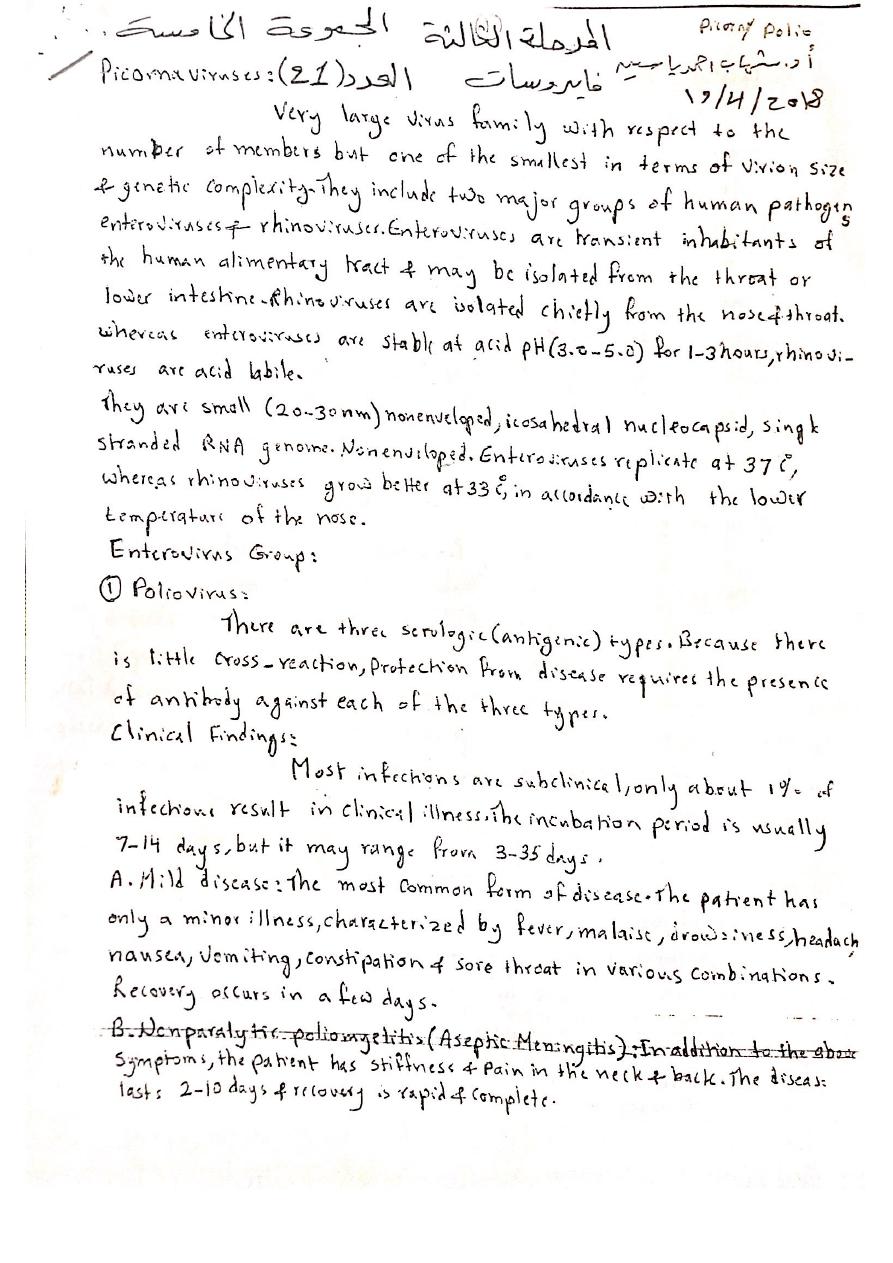 المرحلة الثالثة المجموعة الخامسة
Picorny Polio
أ.د. شهاب احمد ياسين
Picornaviruses: العدد (21) فايروسات
19/4/2018
Very large virus family with respect to the
number of members but one of the smallest in terms of virion size
& genetic complexity. They include two major groups of human pathogens
enteroviruses & rhinoviruses. Enteroviruses are transient inhabitants of
the human alimentary tract & may be isolated from the throat or
lower intestine. Rhinoviruses are isolated chiefly from the nose & throat.
whereas enteroviruses are stable at acid pH (3.0-5.0) for 1-3 hours, rhinovi-
ruses are acid labile.
They are small (20-30nm) nonenveloped, icosahedral nucleocapsid, single
stranded RNA genome. Nonenveloped. Enteroviruses replicate at 37 C°,
whereas rhinoviruses grow better at 33 C°, in accordance with the lower
temperature of the nose.
Enterovirus Group:
① Poliovirus:
There are three serologic (antigenic) types. Because there
is little cross-reaction, protection from disease requires the presence
of antibody against each of the three types.
Clinical Findings:
Most infections are subclinical, only about 1% of
infections result in clinical illness. The incubation period is usually
7-14 days, but it may range from 3-35 days.
A. Mild disease: The most common form of disease. The patient has
only a minor illness, characterized by fever, malaise, drowsiness, headach,
nausea, vomiting, constipation & sore throat in various combinations.
Recovery occurs in a few days.
B. Nonparalytic poliomyelitis (Aseptic Meningitis): In addition to the above
Symptoms, the patient has stiffness & pain in the neck & back. The disease
lasts 2-10 days & recovery is rapid & complete.